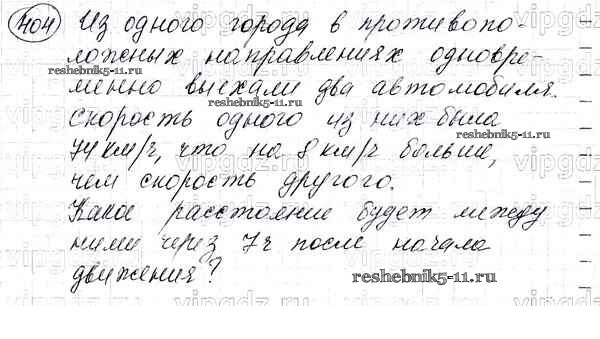 404 Из одного города в противопо-
ложных направлениях одновре-
менно выехали два автомобиля.
Скорость одного из них была
74 км/ч, что на 8 км/ч больше,
чем скорость другого.
Какое расстояние будет между
ними через 7ч после начала
движения?
reshebnik5-11.ru
reshebnik5-11.ru
reshebnik5-11.ru
reshebnik5-11.ru
vipgdz.ru